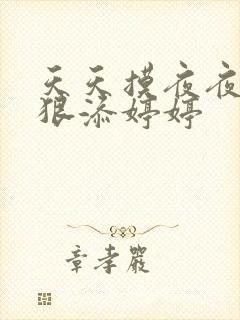 天天摸夜夜
狠添婷婷
章孝严